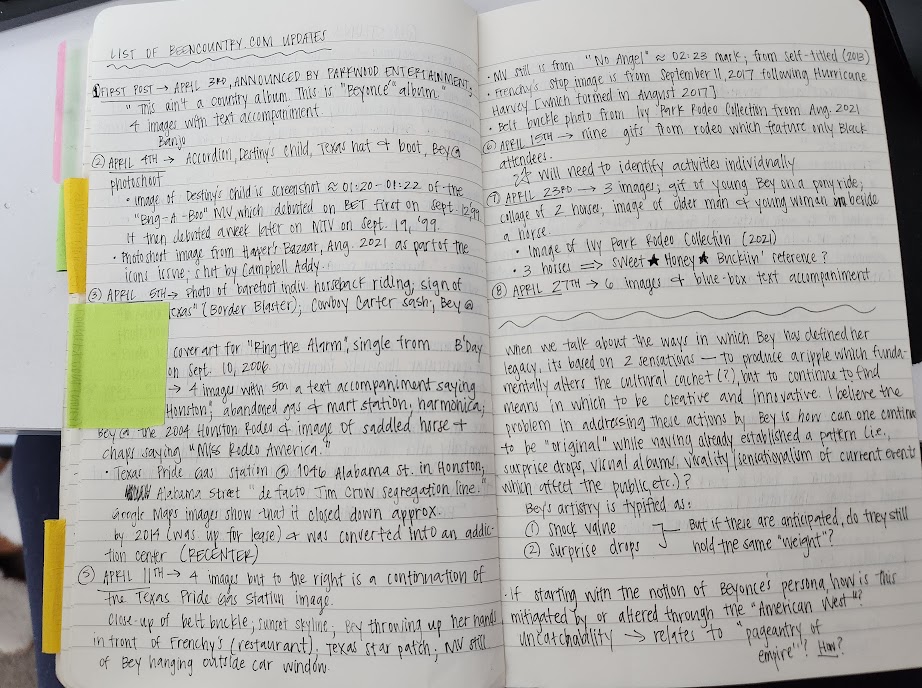 LIST OF BEENCOUNTRY.COM UPDATES
① FIRST POST → APRIL 3RD, ANNOUNCED BY PARKWOOD ENTERTAINMENT,
"This ain't a country album. This is "Beyoncé" album."
4 images with text accompaniment
Banjo
② APRIL 4TH → Accordion, Destiny's Child, Texas hat & boot, Bey @
photoshoot
• image of Destiny's Child is screenshot ≈ 01:20-01:22 of the
"Bug-A-Boo" MV, which debuted on BET first on Sept. 12 '99
It then debuted a week later on MTV on Sept. 19, '99.
• Photoshoot image from Harper's Bazaar, Aug. 2021 as part of the
icons issue - shot by Campbell Addy.
③ APRIL 5TH → Photo of barefoot indiv. horseback riding; sign of
exas" (Border Blaster); Cowboy Carter sash; Bey @
cover art for "Ring the Alarm", single from B'Day
on Sept. 10, 2006.
→ 4 images with a text accompaniment saying
Houston; abandoned gas & mart station, harmonica;
Bey @ the 2004 Houston Rodeo & image of saddled horse &
chaps saying "Miss Rodeo America."
• Texas Pride Gas Station @ 1046 Alabama St. in Houston;
Alabama Street "de facto Jim Crow segregation line."
Google Maps images show that it closed down approx.
by 2014 (was up for lease) & was converted into an addic-
tion center (RECENTER)
⑤ APRIL 11TH → 4 images but to the right is a continuation of
the Texas Pride Gas Station image.
Close-up of belt buckle; sunset skyline; Bey throwing up her hands
in front of Frenchy's (restaurant); Texas star patch; MV still
of Bey hanging outside car window.
• MV still is from "No Angel" ≈ 02:23 mark; from self-titled (2013)
• Frenchy's stop image is from September 11, 2017 following Hurricane
Harvey [which formed in August 2017]
• Belt buckle photo from Ivy Park Rodeo Collection from Aug. 2021
⑥ APRIL 15TH → nine gifs from rodeo which feature only Black
attendees.
Will need to identify activities individually
⑦ APRIL 23RD → 3 images; gif of young Bey on a pony ride;
collage of 2 horses; image of older man & young woman beside
a horse.
• Image of Ivy Park Rodeo Collection (2021)
• 3 horses ⇒ Sweet ★ Honey ★ Buckiin' reference?
⑧ APRIL 27TH → 6 images & blue-box text accompaniment
When we talk about the ways in which Bey has defined her
legacy, its based on 2 sensations — to produce a ripple which funda-
mentally alters the cultural cachet (?), but to continue to find
means in which to be creative and innovative. I believe the
problem in addressing these actions by Bey is how can one continue
to be "original" while having already established a pattern (i.e.,
surprise drops, visual albums, virality (sensationalism of current events
which affect the public, etc.)?
Bey's artistry is typified as:
① Shock value
② Surprise drops
But if these are anticipated, do they still
hold the same "weight"?
• If starting with the notion of Beyoncé's persona, how is this
mitigated by or altered through the "American West"?
Uncatchability → relates to "pageantry of
empire"? How?